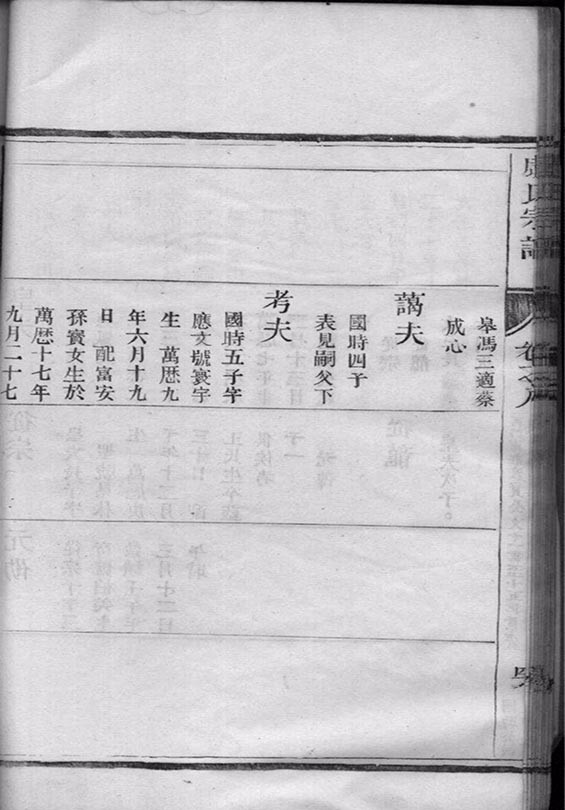 氏宗譜
皋馮三適蔡
成心
藹夫
國時四子
表見嗣父下
考夫
國時五子字
應文號寰宇
生萬曆九
年六月十九
日配富安
孫賓女生於
萬曆十七年
九月二十七